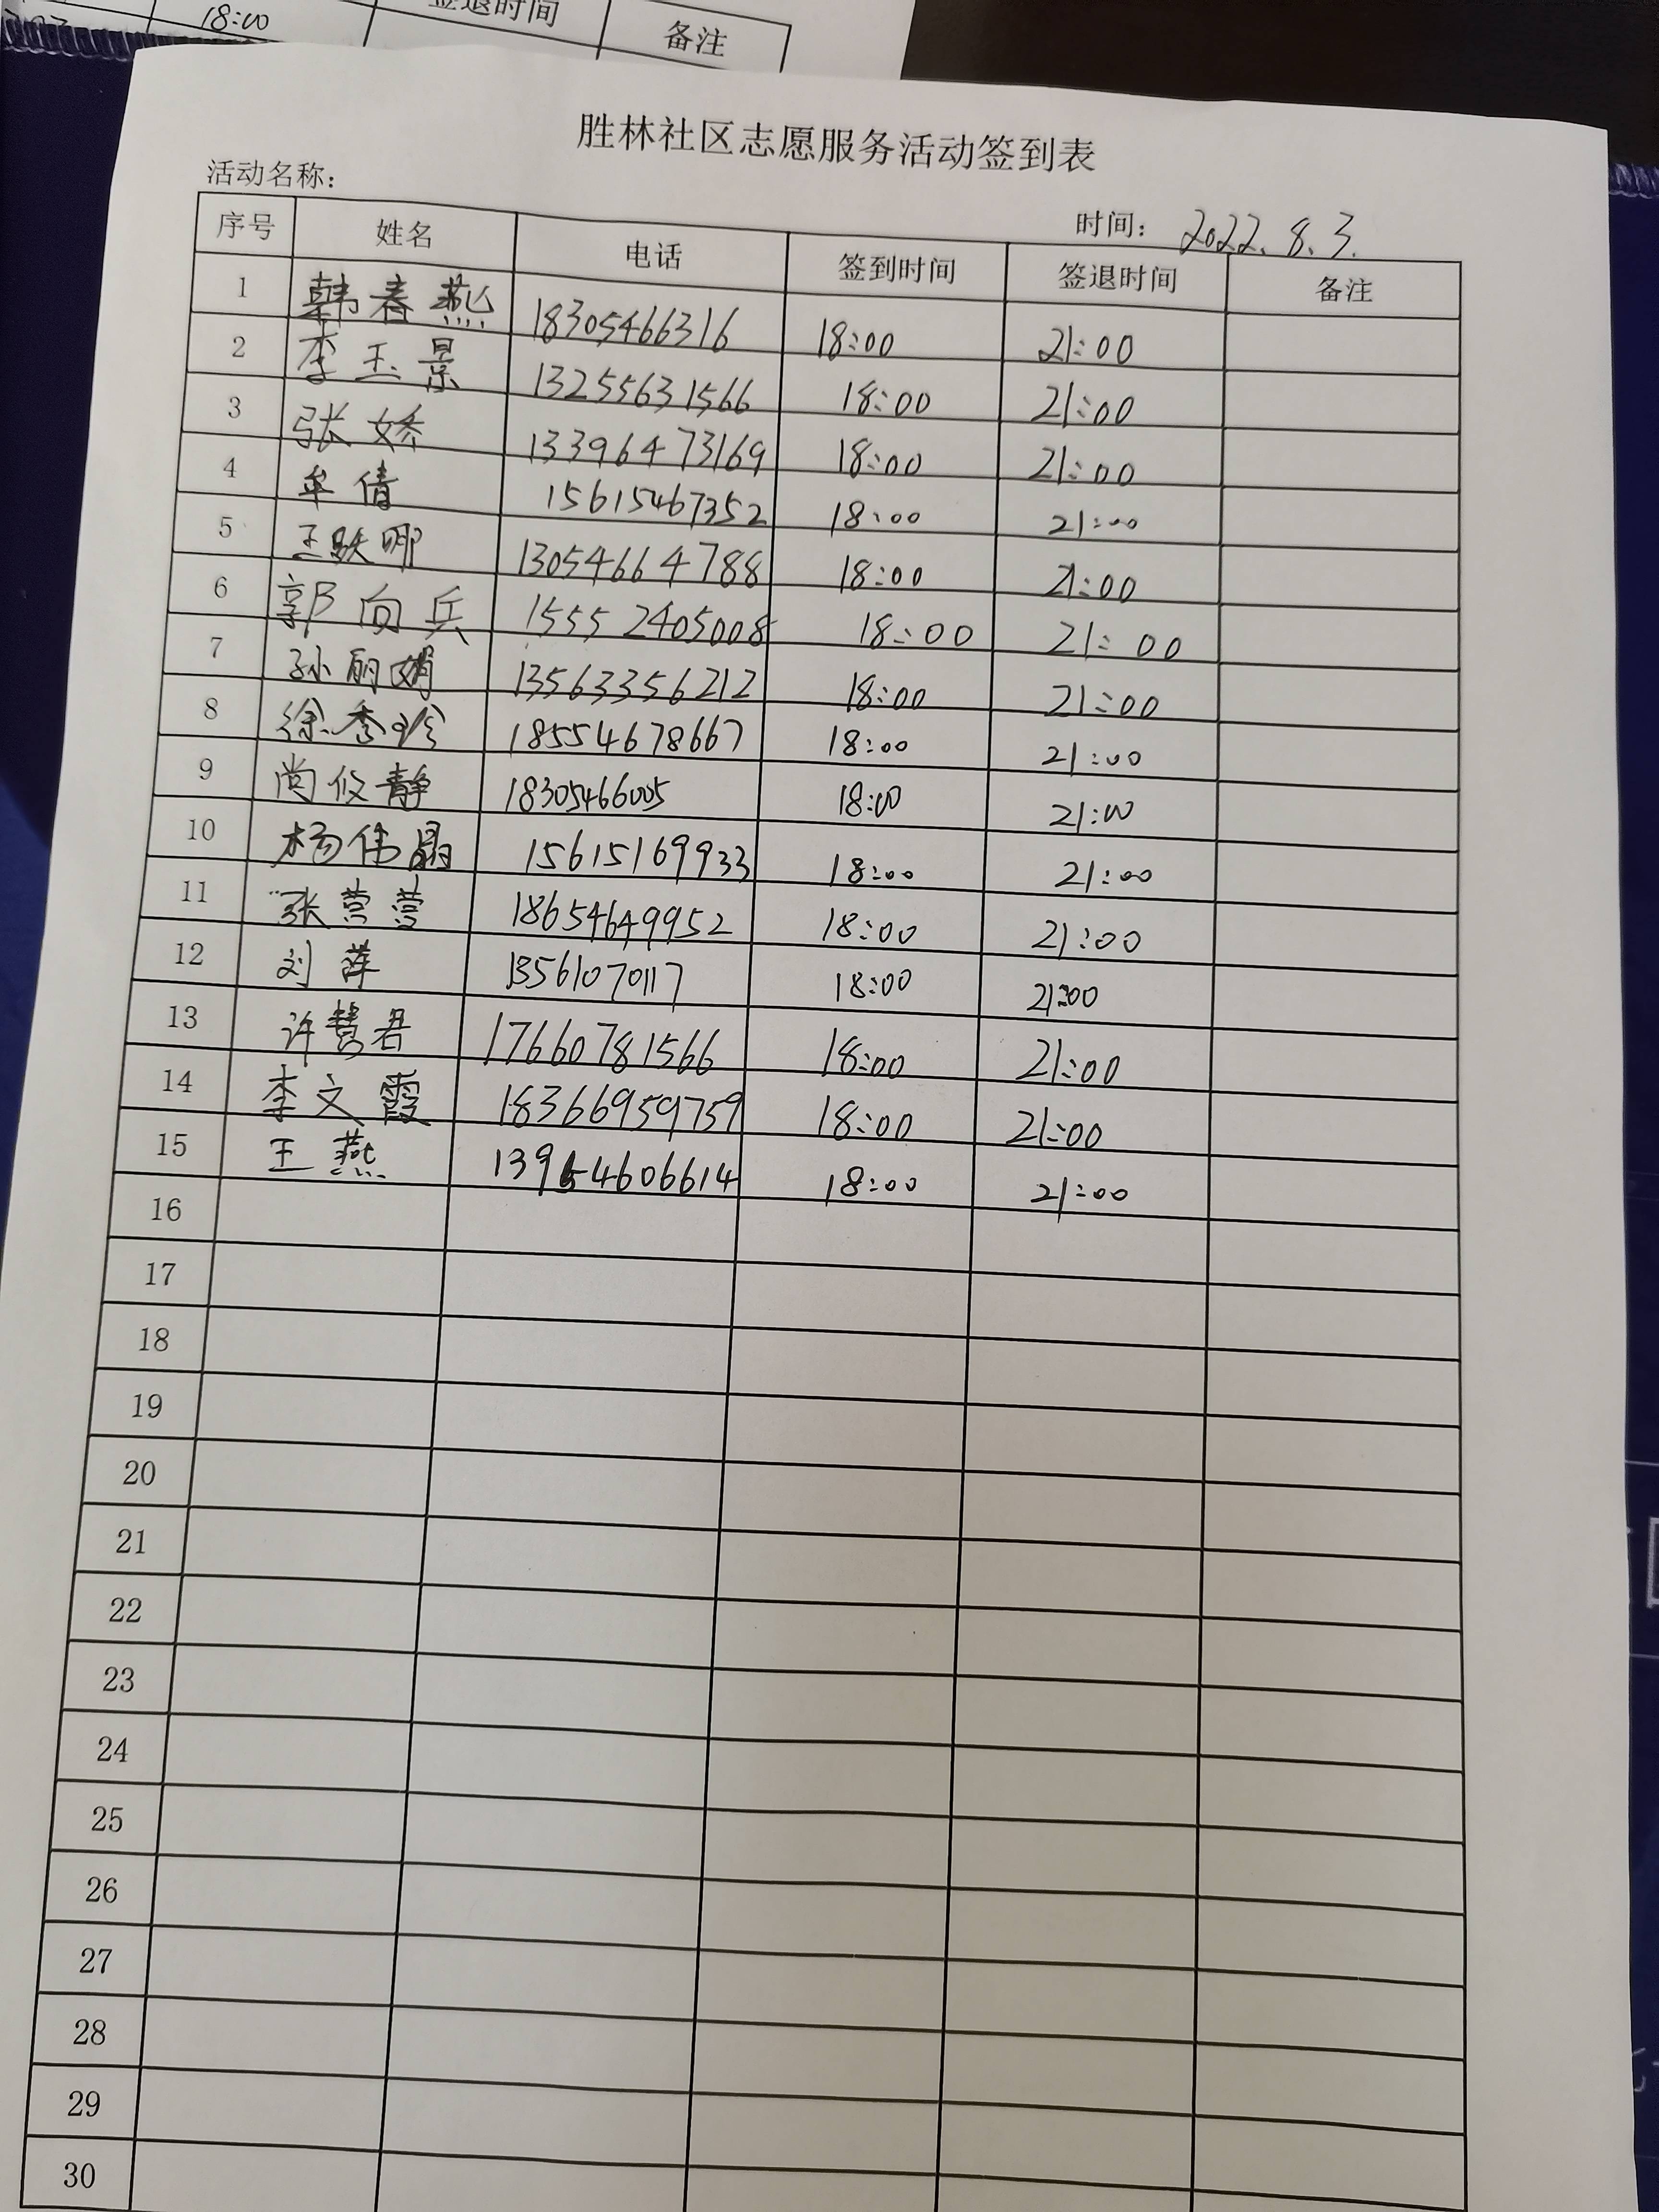 18:00
签退时间
备注
胜林社区志愿服务活动签到表
活动名称:
时间: 2022.8.3.
序号 姓名 电话 签到时间 签退时间 备注
1 韩春燕 18305466316 18:00 21:00
2 李玉景 13255631566 18:00 21:00
3 张娇 13396473169 18:00 21:00
4 牟倩 15615467352 18:00 21:00
5 王跃娜 13054664788 18:00 21:00
6 郭向兵 15552405008 18:00 21:00
7 孙丽娟 13563356212 18:00 21:00
8 徐秀珍 18554678667 18:00 21:00
9 尚俊静 18305466005 18:00 21:00
10 杨伟晶 15615169933 18:00 21:00
11 张营营 18654649952 18:00 21:00
12 刘萍 13561070117 18:00 21:00
13 许慧君 17660781566 18:00 21:00
14 李文霞 18366959759 18:00 21:00
15 王燕 13954606614 18:00 21:00
16
17
18
19
20
21
22
23
24
25
26
27
28
29
30